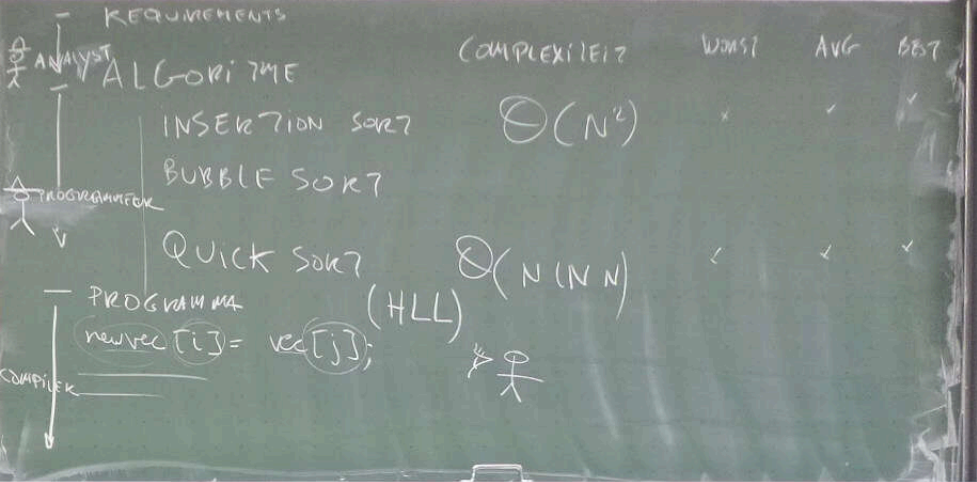 REQUIREMENTS
ANALYST
ALGORITME
COMPLEXITEIT WORST AVG BEST
INSERTION SORT Θ(N²)
BUBBLE SORT
PROGRAMMER
QUICK SORT Θ(N LN N)
PROGRAMMA (HLL)
newvec[i] = vec[j];
COMPILER